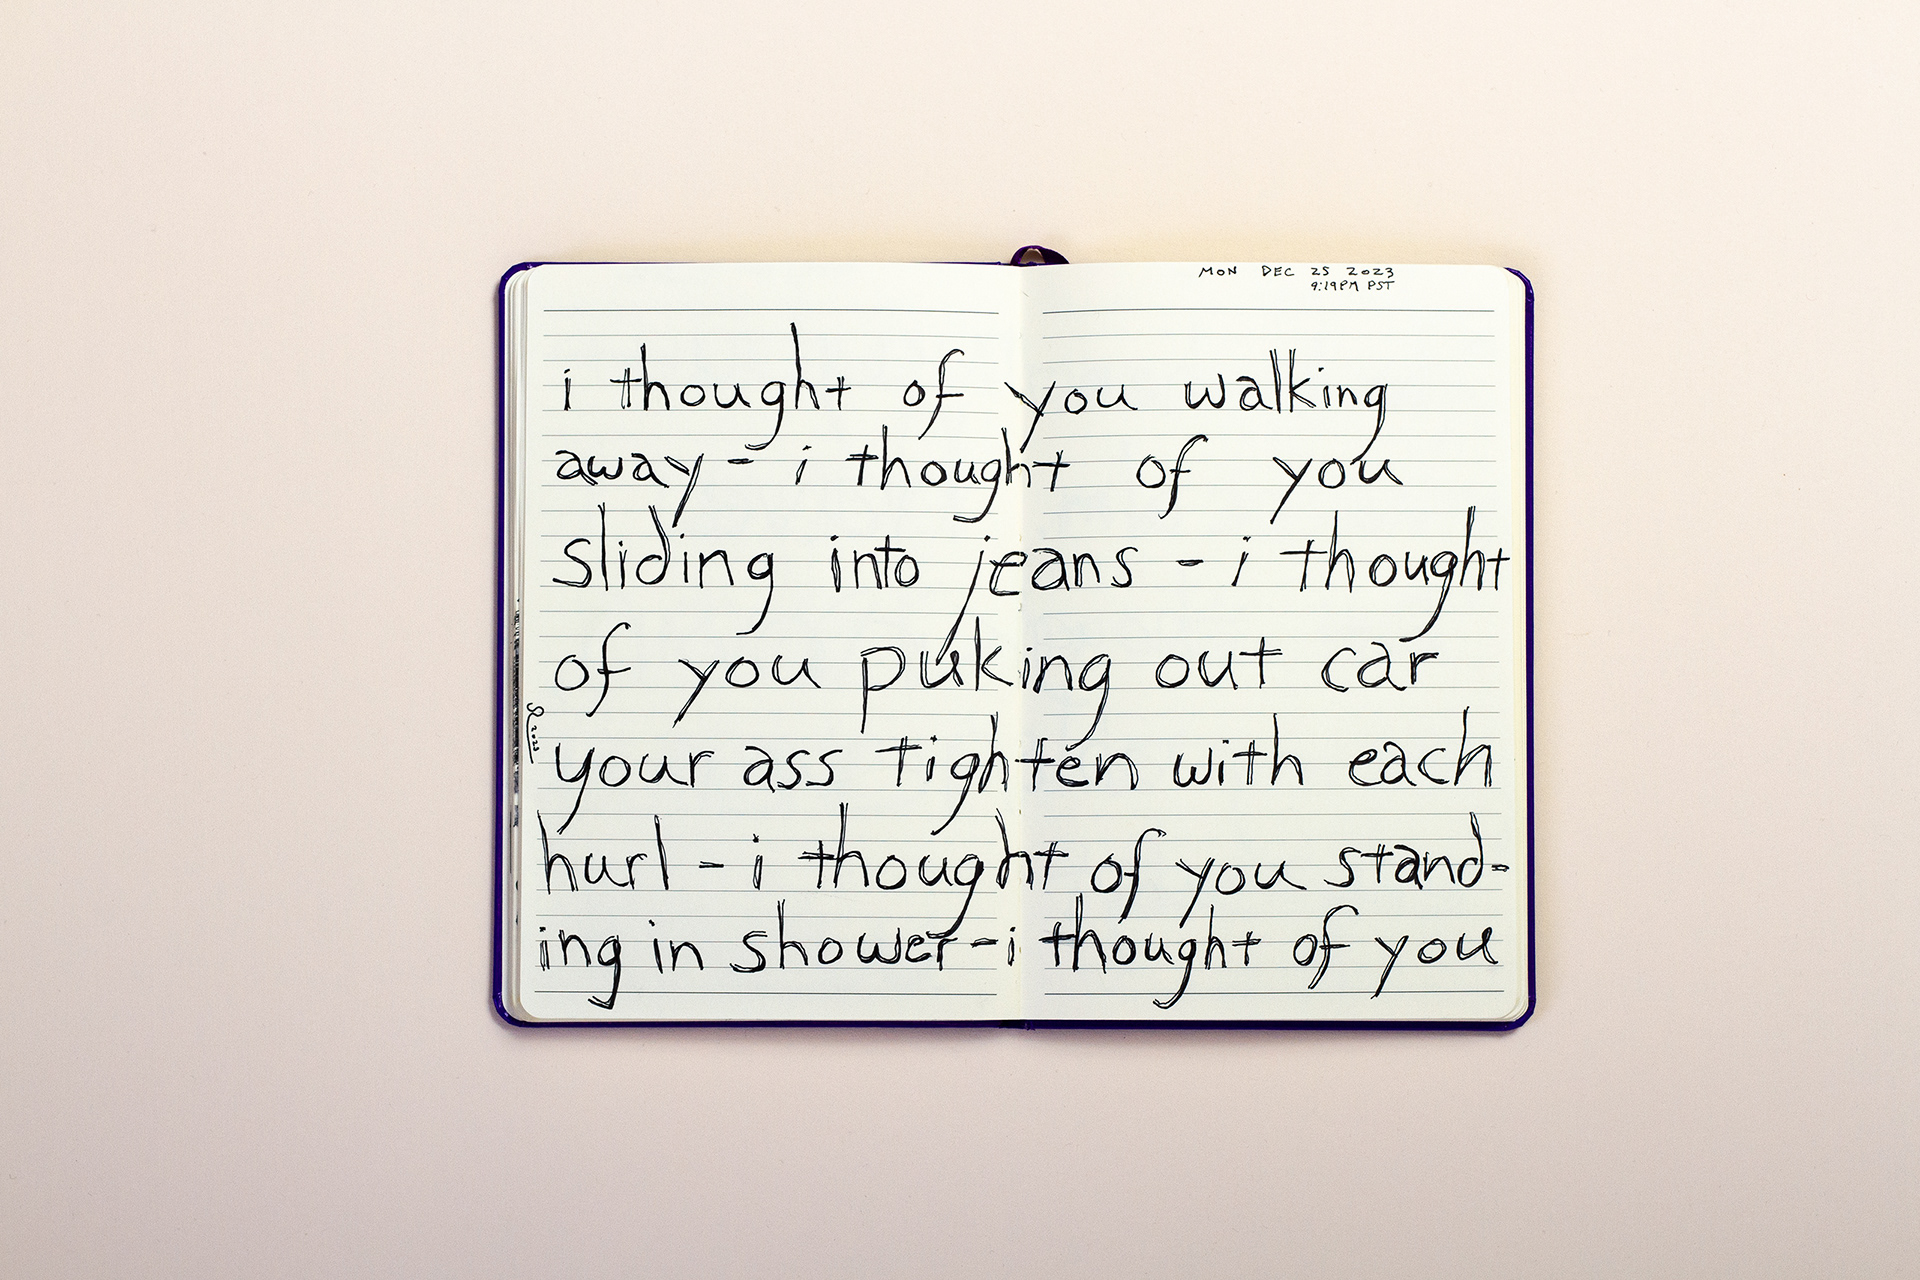 MON DEC 25 2023
9:19PM PST
i thought of you walking
away - i thought of you
sliding into jeans - i thought
of you puking out car
your ass tighten with each
hurl - i thought of you stand-
ing in shower - i thought of you